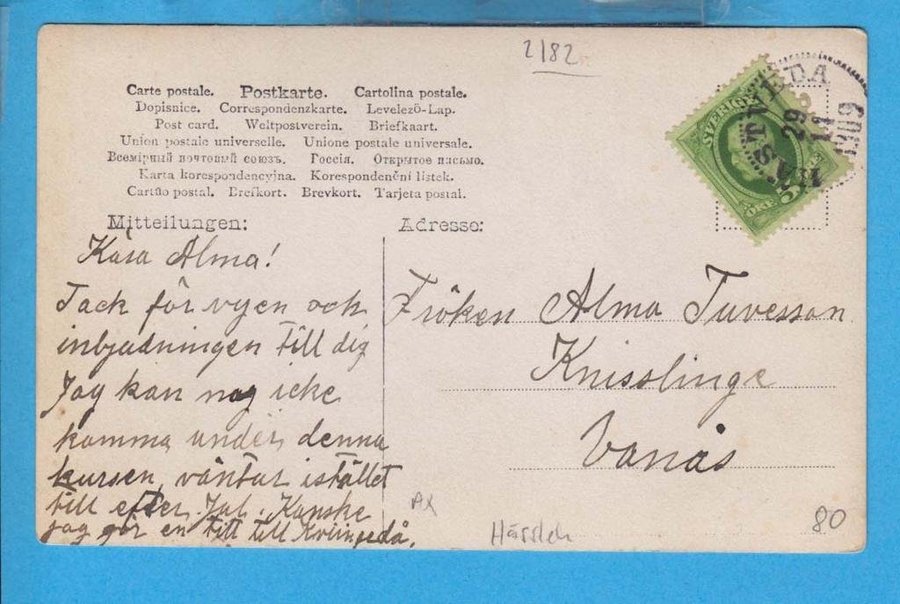 2/82
Carte postale. Postkarte. Cartolina postale.
Dopisnice. Correspondenzkarte. Levelező-Lap.
Post card. Weltpostverein. Briefkaart.
Union postale universelle. Unione postale universale.
Всемірный почтовый союзъ. Россія. Открытое письмо.
Karta korespondencyjna. Korespondenční lístek.
Cartão postal. Brefkort. Brevkort. Tarjeta postal.
SVERIGE
5
ÖRE
HÄSTVEDA
29
11
1909
Mitteilungen:
Kära Alma!
Tack för vyen och
inbjudningen till dig
Jag kan nog icke
komma under denna
kursen, väntar istället
till efter Jul. Kanske
jag gör en till
Adresse:
Fröken Alma Tuvesson
Knisslinge
Vanås
AX
80